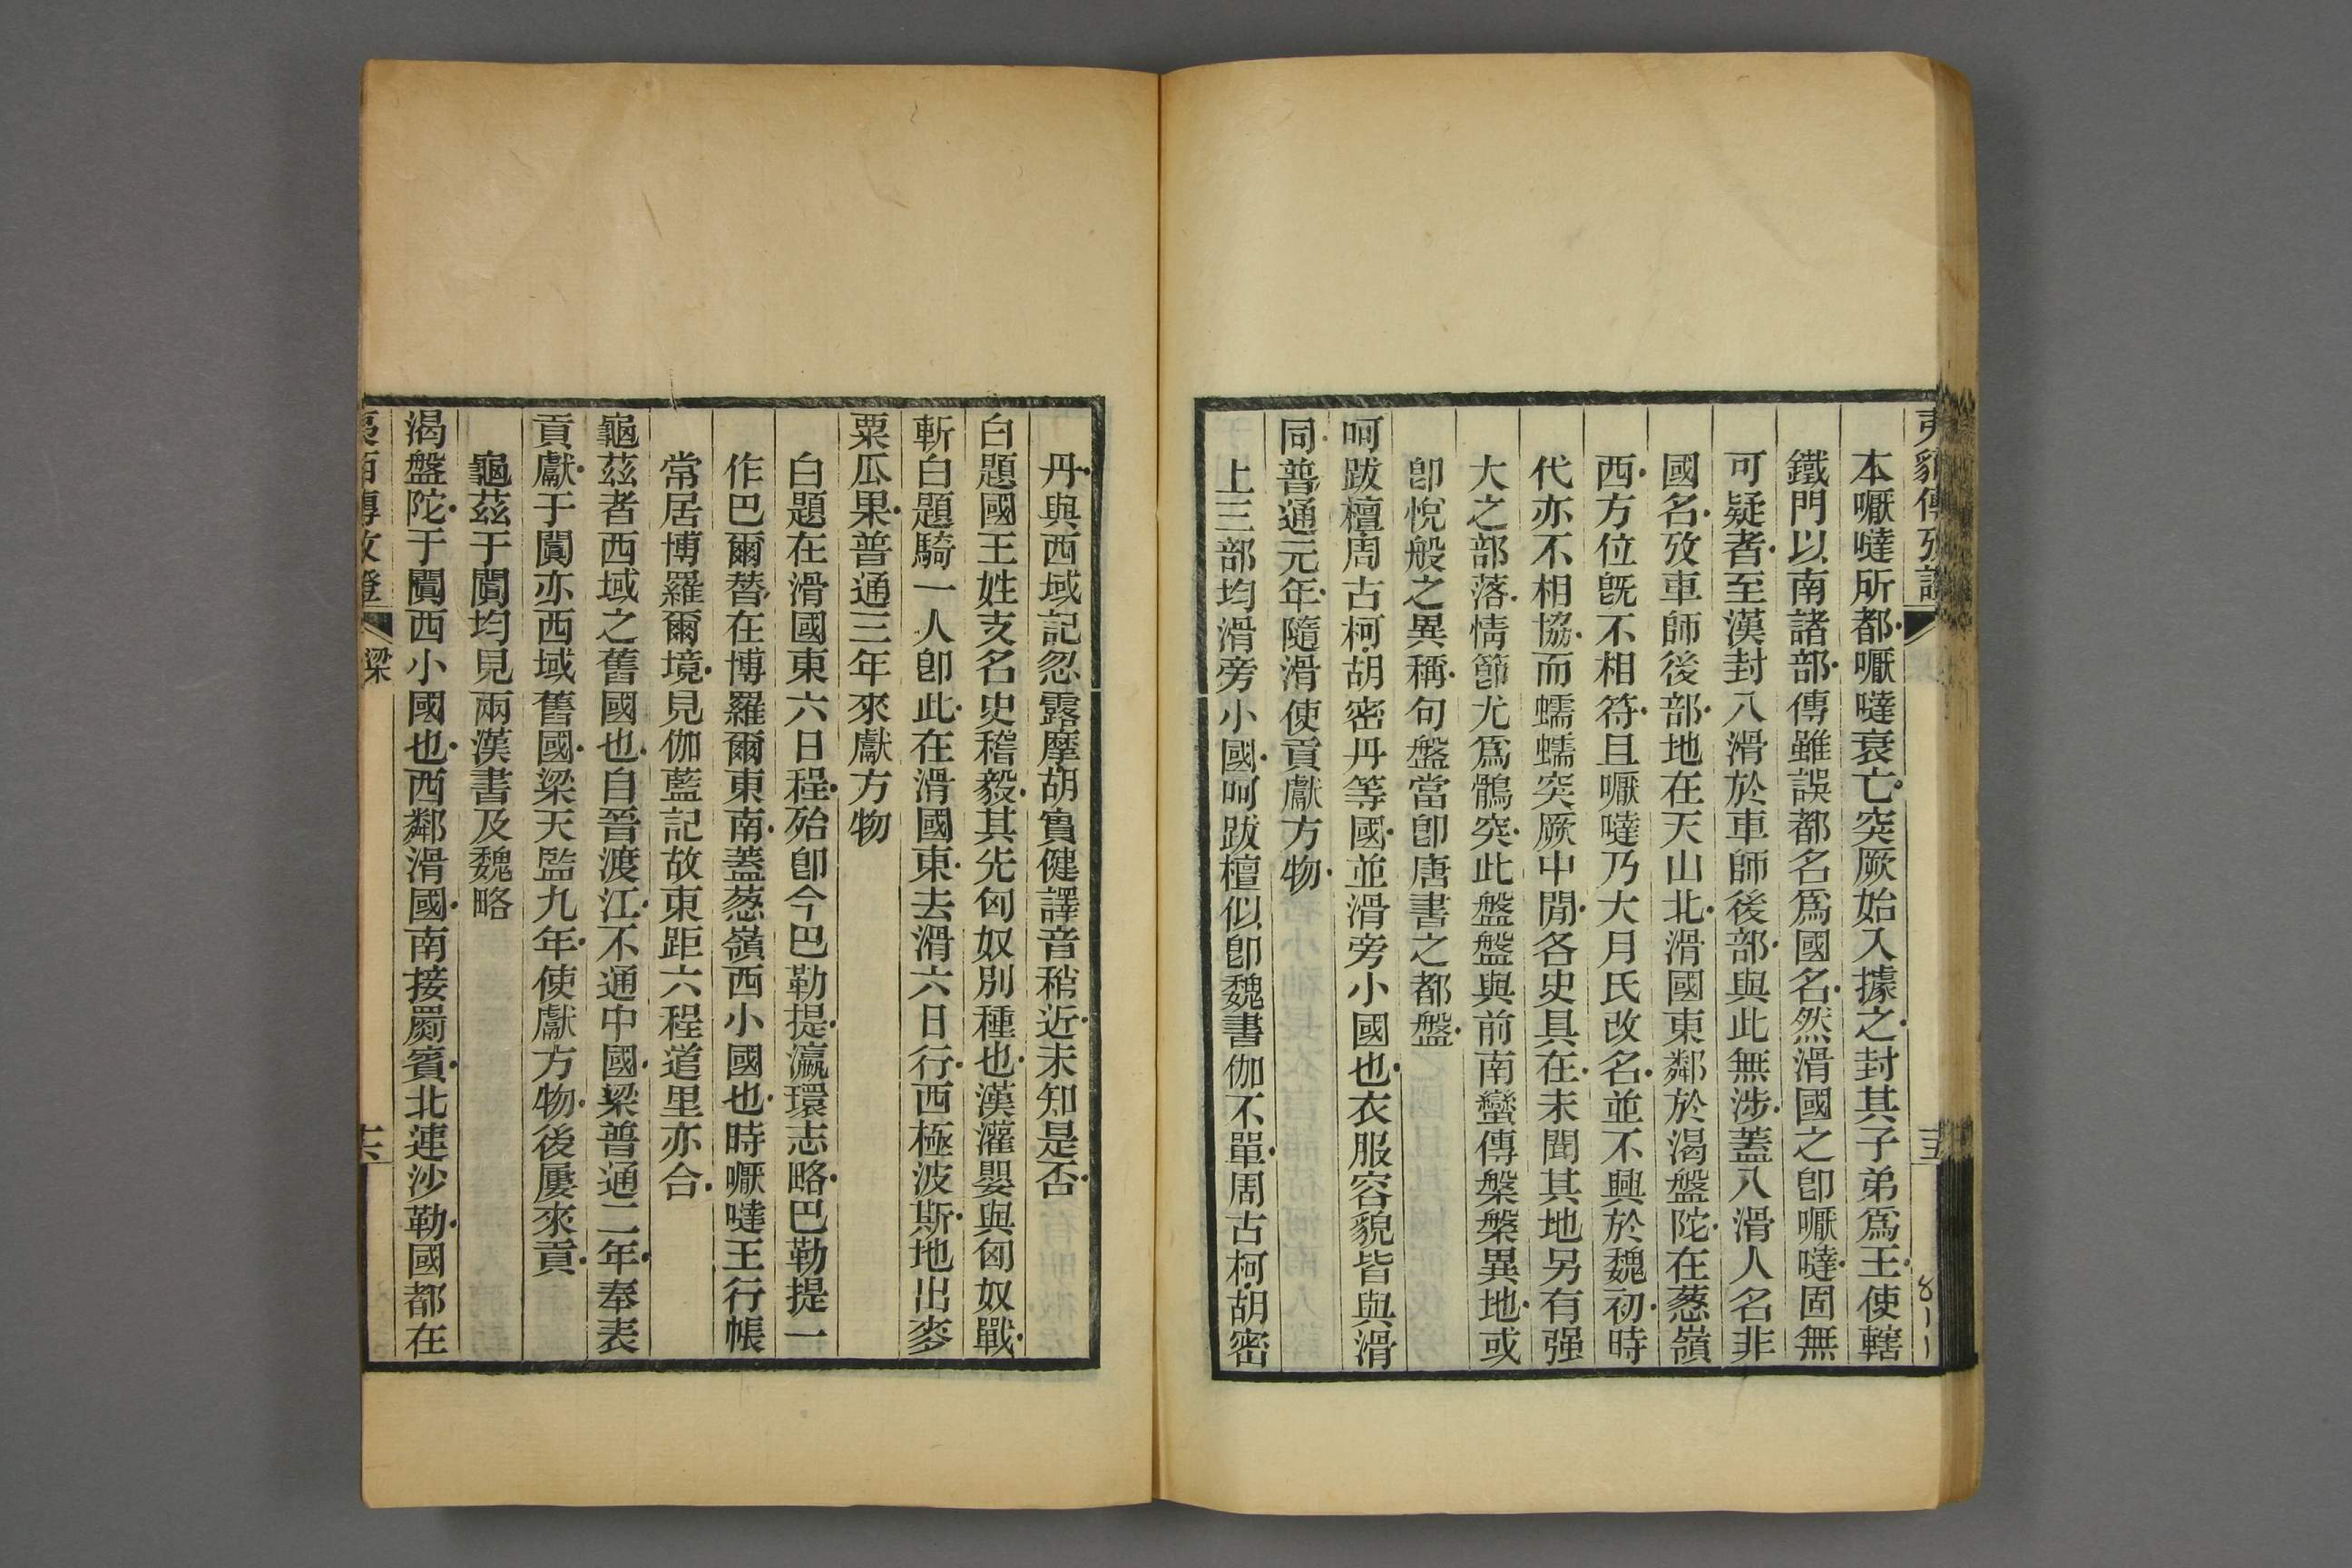 本嚈噠所都嚈噠衰亡突厥始入據之封其子弟爲王使轄
鐵門以南諸部傳雖誤都名爲國名然滑國之卽嚈噠固無
可疑者至漢封八滑於車師後部與此無涉蓋八滑人名非
國名攷車師後部地在天山北滑國東鄰於渴盤陀在葱嶺
西方位旣不相符且嚈噠乃大月氏改名並不興於魏初時
代亦不相協而蠕蠕突厥中閒各史具在未聞其地另有强
大之部落情節尤爲鶻突此盤盤與前南蠻傳槃槃異地或
卽悅般之異稱句盤當卽唐書之都盤
呵跋檀周古柯胡密丹等國並滑旁小國也衣服容貌皆與滑
同普通元年隨滑使貢獻方物
上三部均滑旁小國呵跋檀似卽魏書伽不單周古柯胡密
丹與西域記忽露摩胡實健譯音稍近未知是否
白題國王姓支名史稽毅其先匈奴別種也漢灌嬰與匈奴戰
斬白題騎一人卽此在滑國東去滑六日行西極波斯地出麥
粟瓜果普通三年來獻方物
白題在滑國東六日程殆卽今巴勒提瀛環志略巴勒提一
作巴爾替在博羅爾東南蓋葱嶺西小國也時嚈噠王行帳
常居博羅爾境見伽藍記故東距六程道里亦合
龜茲者西域之舊國也自晉渡江不通中國梁普通二年奉表
貢獻于闐亦西域舊國梁天監九年使獻方物後屢來貢
龜茲于闐均見兩漢書及魏略
渴盤陀于闐西小國也西鄰滑國南接罽賓北連沙勒國都在
梁